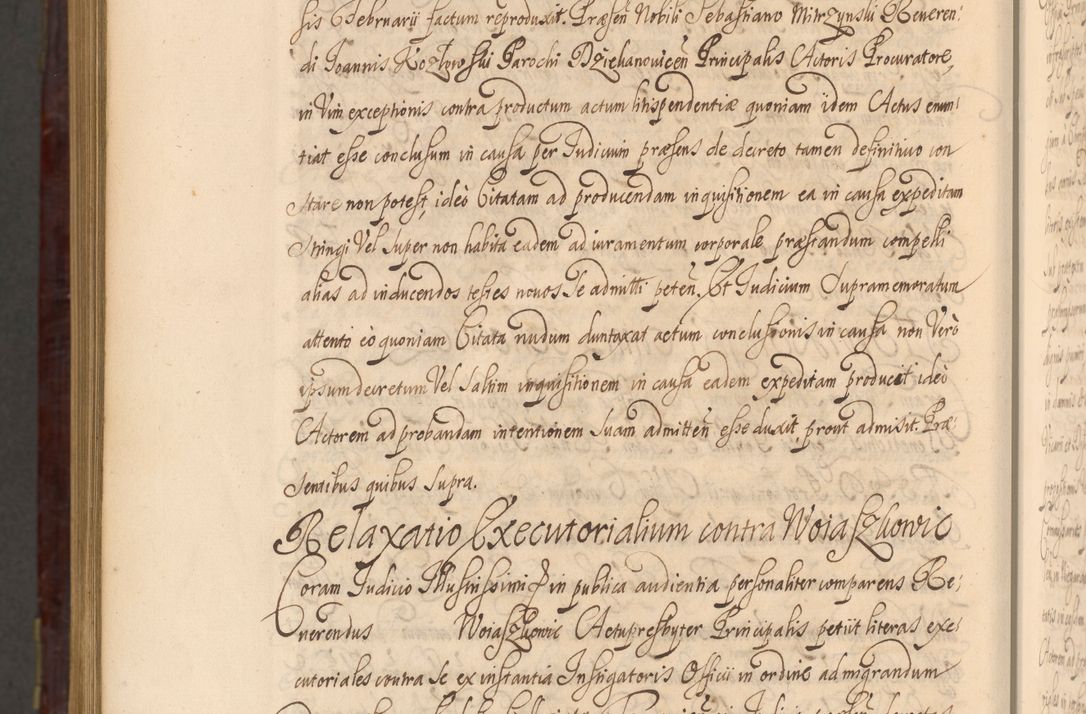 sis Februarii factum reproduxit. Præsen Nobili Sebastiano Mirzynski Reveren:
di Joannis Kozłowski Parochi Dziekanovicen Principalis Actoris Procuratore,
in Vim exceptionis contra productum actum litispendentiæ quoniam idem Actus enun:
tiat esse conclusum in causa per Judicium præsens de decreto tamen definitivo con
stare non potest, ideò Citatam ad producendam inquisitionem ea in causa expeditam
stringi Vel super non habita eadem ad iuramentum corporale præstandum compelli
alias ad inducendos testes novos se admitti peten. Et Judicium Supramemoratum
attento eò quoniam Citata nudum duntaxat actum conclusionis in causa non Verò
ipsum decretum Vel saltim inquisitionem in causa eadem expeditam producat ideò
Actorem ad probandam intentionem suam admitten esse duxit, prout admisit. Præ:
sentibus quibus supra.
Relaxatio Executorialium contra Woiaszkowic
Coram Judicio Illustrissimi in publica audientia personaliter comparens Re:
verendus Woiaszkowic Actupresbyter Principalis petiit literas exe:
cutoriales contra se ex instantia Instigatoris Officii in ordine ad migrandum